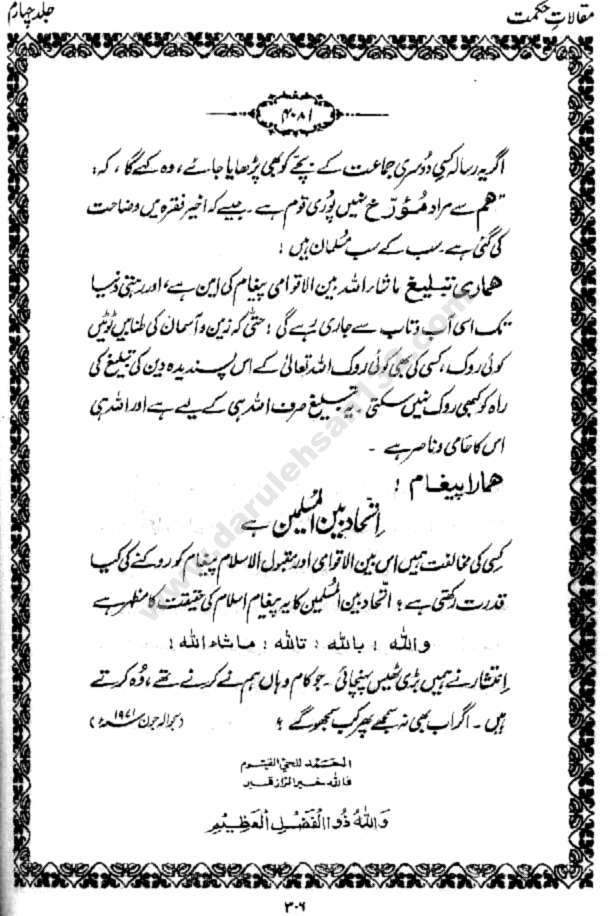 مقالاتِ حکمت
جلد چہارم
۴۰۸۱
اگر یہ رسالہ کسی دُوسری جماعت کے بچّے کو بھی پڑھایا جائے، وہ کہے گا، کہ:
"ھم سے مراد مؤرّخ نہیں پُوری قوم ہے۔ جیسے کہ اخیر فقرہ میں وضاحت
کی گئی ہے۔ سب کے سب مُسلمان ہیں!
ھماری تبلیغ ماشاء اللہ بین الاقوامی پیغام کی امین ہے، اور رہتی دُنیا
تک اسی آب و تاب سے جاری رہے گی! حتّٰی کہ زمین و آسمان کی طنابیں ٹوٹیں
کوئی روک، کسی کی بھی کوئی روک اللہ تعالیٰ کے اس پسندیدہ دین کی تبلیغ کی
راہ کو کبھی روک نہیں سکتی۔ یہ تبلیغ صرف اللہ ہی کے لیے ہے اور اللہ ہی
اس کا حامی و ناصر ہے۔
ھمارا پیغام:
اِتّحاد بین المُسلمین ہے
کسی کی مخالفت ہمیں اس بین الاقوامی اور مقبول الاسلام پیغام کو روکنے کی کیا
قدرت رکھتی ہے؟ اتّحاد بین المُسلمین کا یہ پیغام اسلام کی حقیقت کا مظہر ہے
واللہ! باللہ! تاللہ! ماشاء اللہ!
اِنتشار نے ہمیں بڑی ٹھیس پہنچائی۔ جو کام وہاں ہم نے کرنے تھے، وُہ کرتے
ہیں۔ اگر اب بھی نہ سمجھے پھر کب سمجھو گے؟ (سجدالہ جون ۱۹۷۱ء)
الحمد للحی القیوم
فاللہ خیر الرازقین
وَاللّٰہُ ذُوالْفَضْلِ الْعَظِیْمِ
۳۰۶
www.darulehsan135.com